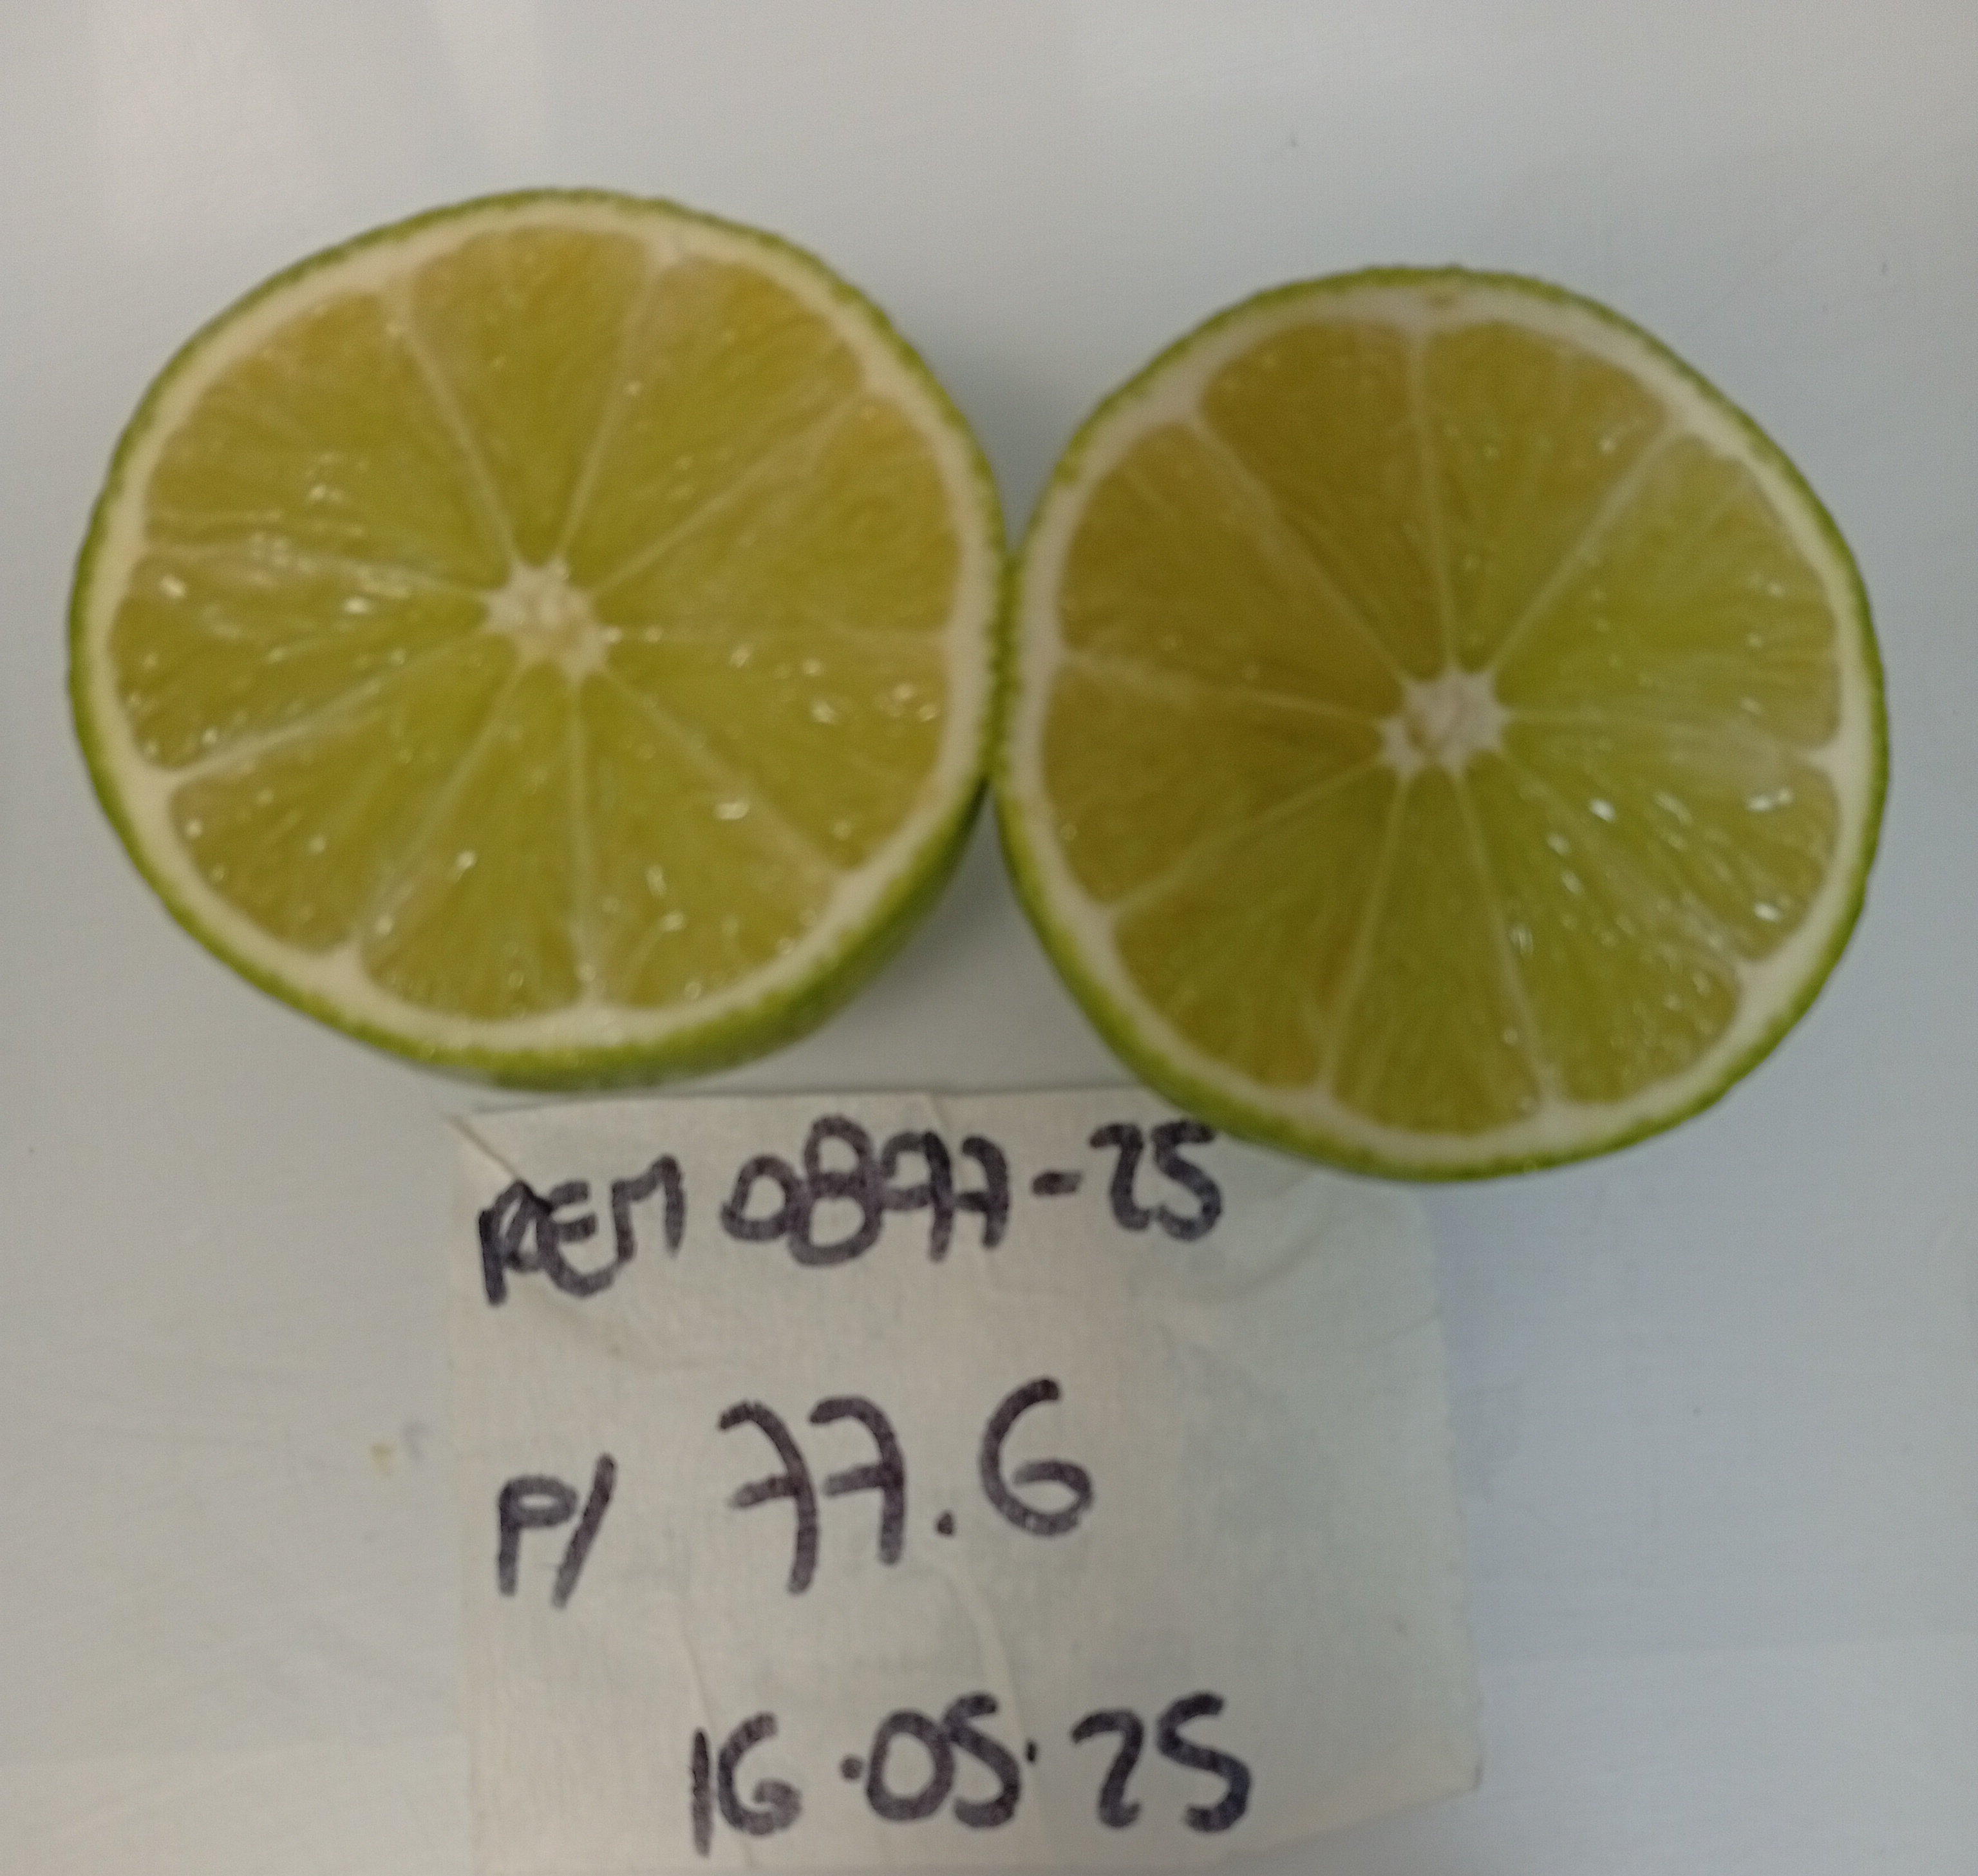 REM 0877-25
P/ 77.6
16.05.25